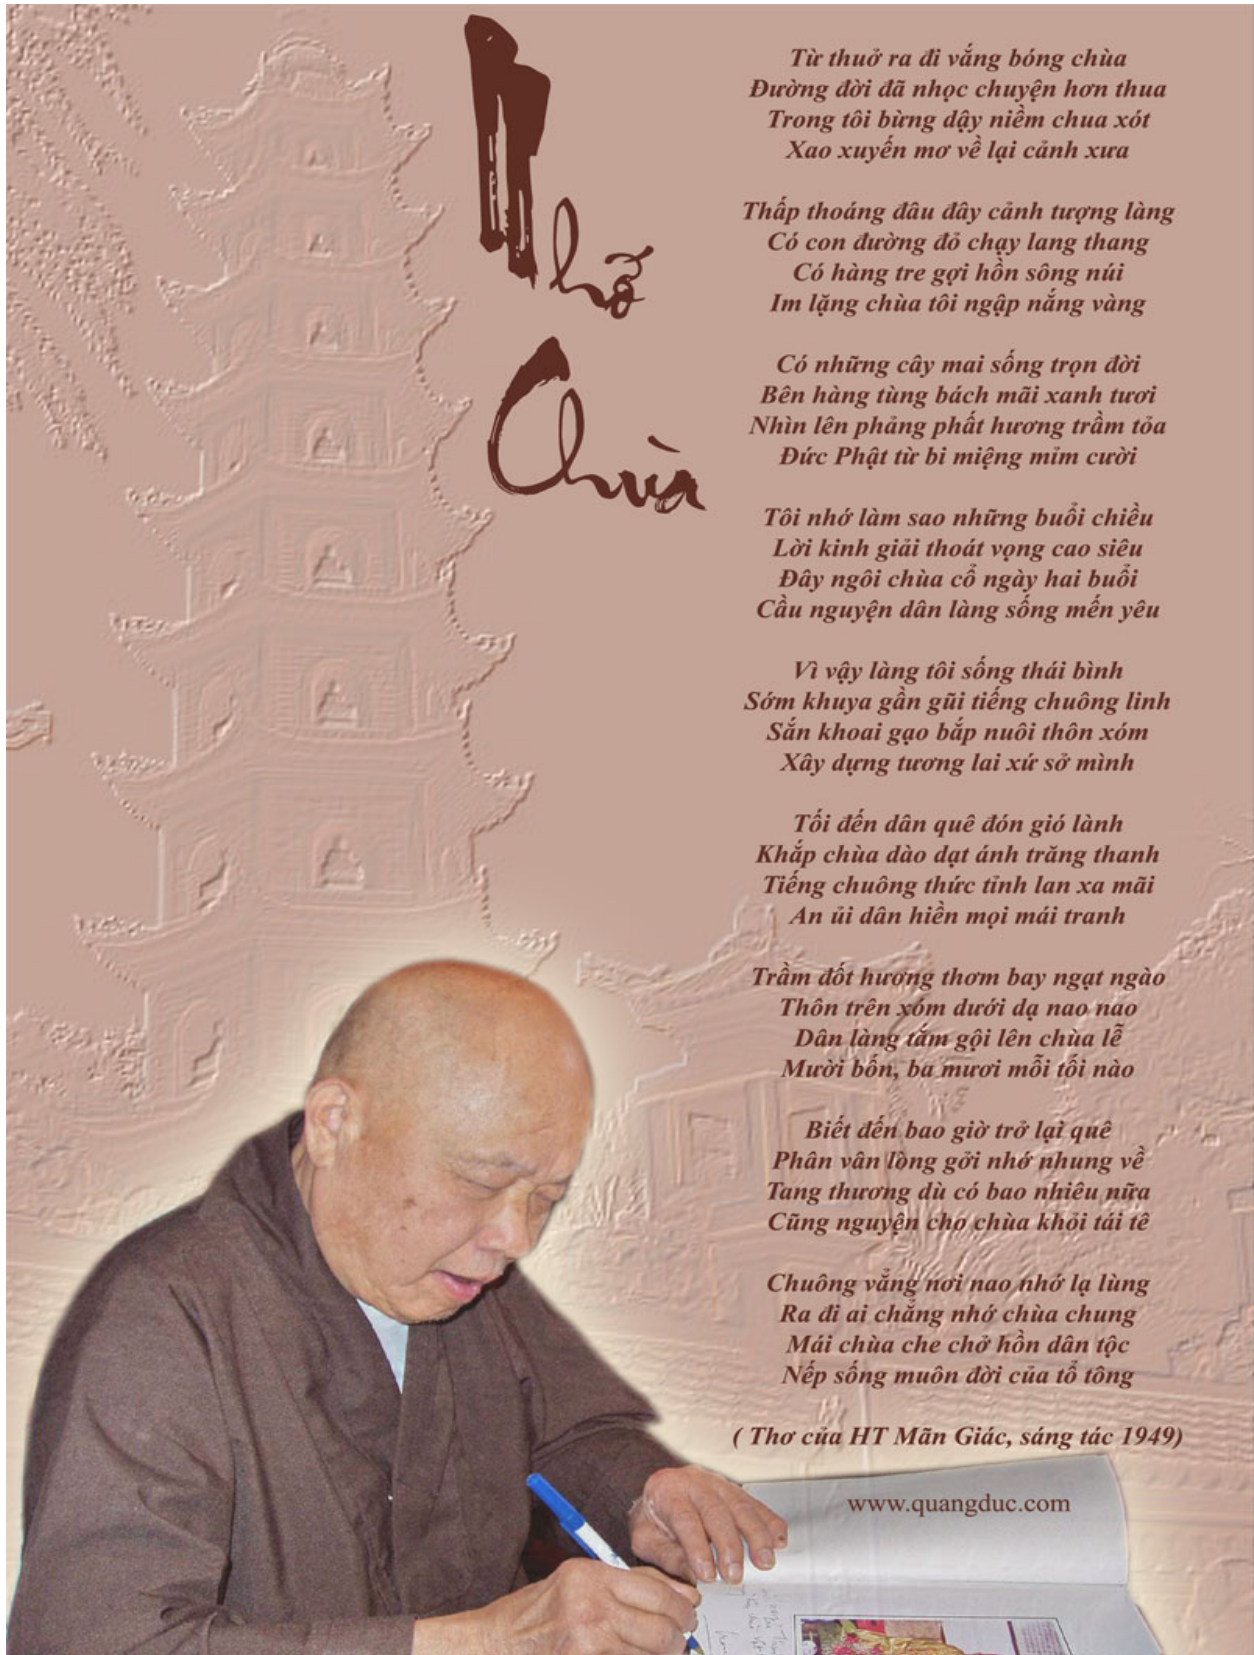 Nhớ
Chùa
Từ thuở ra đi vắng bóng chùa
Đường đời đã nhọc chuyện hơn thua
Trong tôi bừng dậy niềm chua xót
Xao xuyến mơ về lại cảnh xưa
Thấp thoáng đâu đây cảnh tượng làng
Có con đường đỏ chạy lang thang
Có hàng tre gợi hồn sông núi
Im lặng chùa tôi ngập nắng vàng
Có những cây mai sống trọn đời
Bên hàng tùng bách mãi xanh tươi
Nhìn lên phảng phất hương trầm tỏa
Đức Phật từ bi miệng mỉm cười
Tôi nhớ làm sao những buổi chiều
Lời kinh giải thoát vọng cao siêu
Đây ngôi chùa cổ ngày hai buổi
Cầu nguyện dân làng sống mến yêu
Vì vậy làng tôi sống thái bình
Sớm khuya gần gũi tiếng chuông linh
Sắn khoai gạo bắp nuôi thôn xóm
Xây dựng tương lai xứ sở mình
Tối đến dân quê đón gió lành
Khắp chùa dào dạt ánh trăng thanh
Tiếng chuông thức tỉnh lan xa mãi
An ủi dân hiền mọi mái tranh
Trầm đốt hương thơm bay ngạt ngào
Thôn trên xóm dưới dạ nao nao
Dân làng tắm gội lên chùa lễ
Mười bốn, ba mươi mỗi tối nào
Biết đến bao giờ trở lại quê
Phân vân lòng gởi nhớ nhung về
Tang thương dù có bao nhiêu nữa
Cũng nguyện cho chùa khỏi tái tê
Chuông vẳng nơi nao nhớ lạ lùng
Ra đi ai chẳng nhớ chùa chung
Mái chùa che chở hồn dân tộc
Nếp sống muôn đời của tổ tông
( Thơ của HT Mãn Giác, sáng tác 1949)
www.quangduc.com